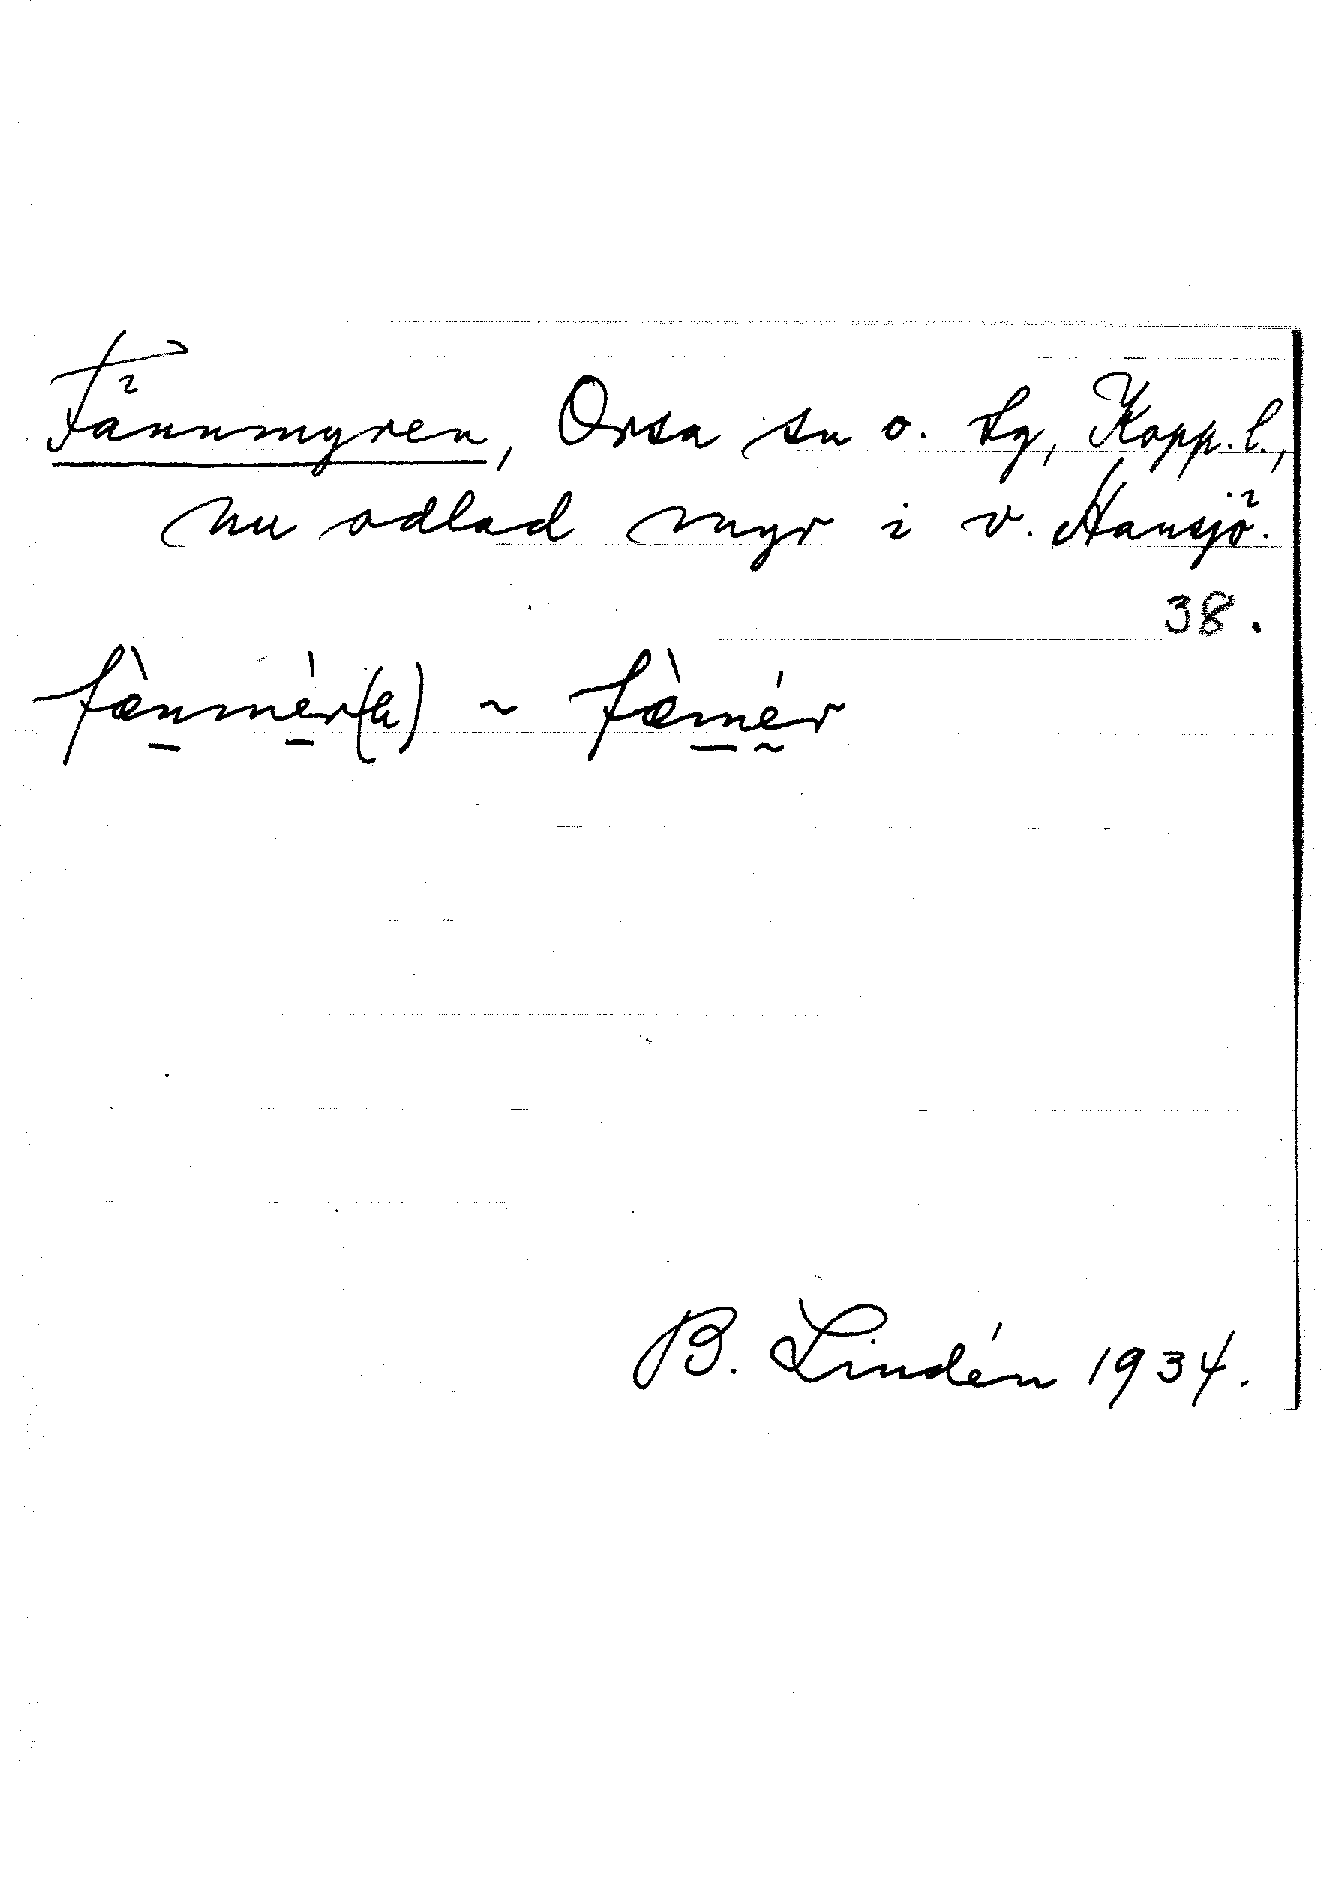 Fännmyren, Orsa sn o. tg, Kopp. l.,
nu odlad myr i v. Hansjö.
38.
fæ̀nmér(a) ~ fæ̀mér
B. Lindén 1934.